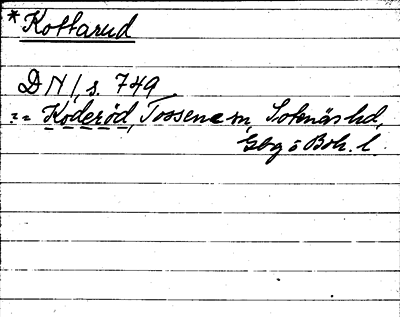 *Kottarud
DN 1, s. 749
== Koderöd, Tossene sn, Sotenäs hd,
Gbg o Boh. l.